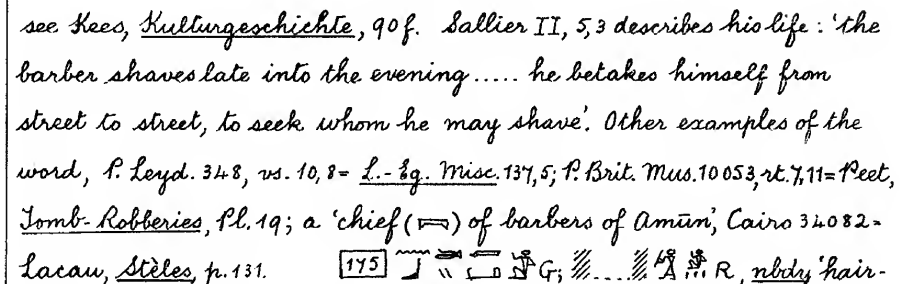 see Kees, Kulturgeschichte, 90 f. Sallier II, 5,3 describes his life: 'the
barber shaves late into the evening ..... he betakes himself from
street to street, to seek whom he may shave'. Other examples of the
word, P. Leyd. 348, vs. 10,8 = L.-Eg. Misc. 137,5; P. Brit. Mus. 10053, rt. 7,11 = Peet,
Tomb-Robberies, Pl. 19; a 'chief ( ) of barbers of Amūn', Cairo 34082 =
Lacau, Stèles, p. 131. 175 G; R, nbdy 'hair-